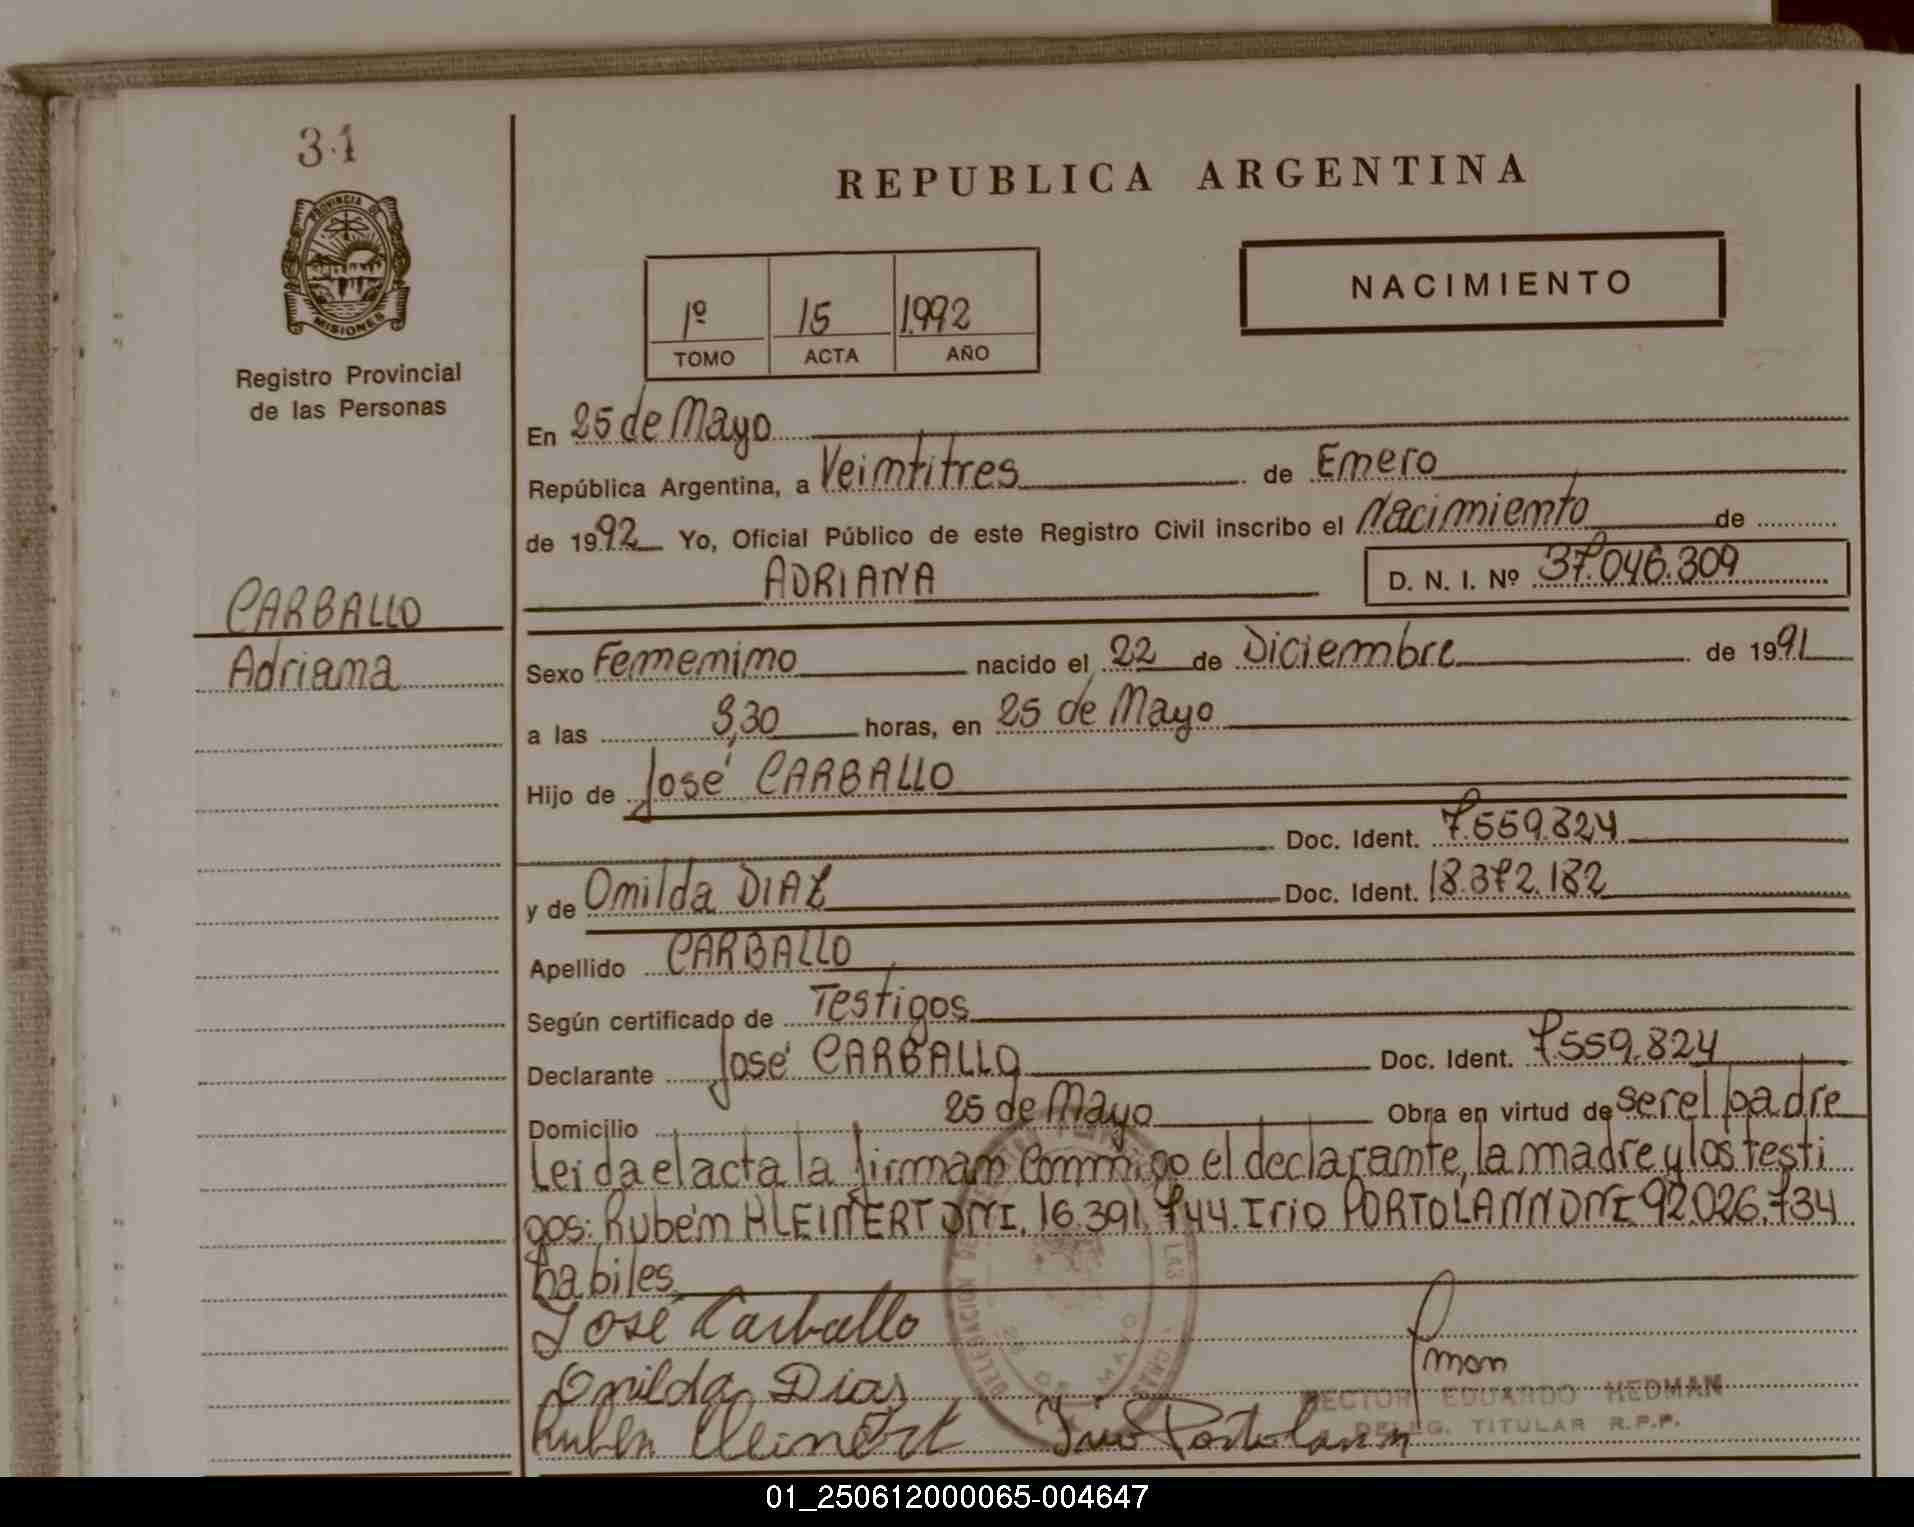 31
PROVINCIA DE
MISIONES
Registro Provincial
de las Personas
CARBALLO
Adriana
REPUBLICA ARGENTINA
NACIMIENTO
1º 15 1.992
TOMO ACTA AÑO
En 25 de Mayo
República Argentina, a Veintitres de Enero
de 1992 Yo, Oficial Público de este Registro Civil inscribo el Nacimiento de
ADRIANA D. N. I. Nº 37.046.309
Sexo Femenino nacido el 22 de Diciembre de 1991
a las 3,30 horas, en 25 de Mayo
Hijo de José CARBALLO
Doc. Ident. 7.559.824
y de Onilda DIAZ Doc. Ident. 18.372.182
Apellido CARBALLO
Según certificado de Testigos
Declarante José CARBALLO Doc. Ident. 7.559.824
Domicilio 25 de Mayo Obra en virtud de ser el padre
Leida el acta la firman conmigo el declarante, la madre y los testi
gos: Rubén KLEINERT DNI. 16.391.744. Irio PORTOLANN DNI 92.026.734
habiles
José Carballo
Onilda Dias
Rubén Kleinert Irio Portolann
HECTOR EDUARDO HEDMAN
DELEG. TITULAR R.P.P.
01_250612000065-004647